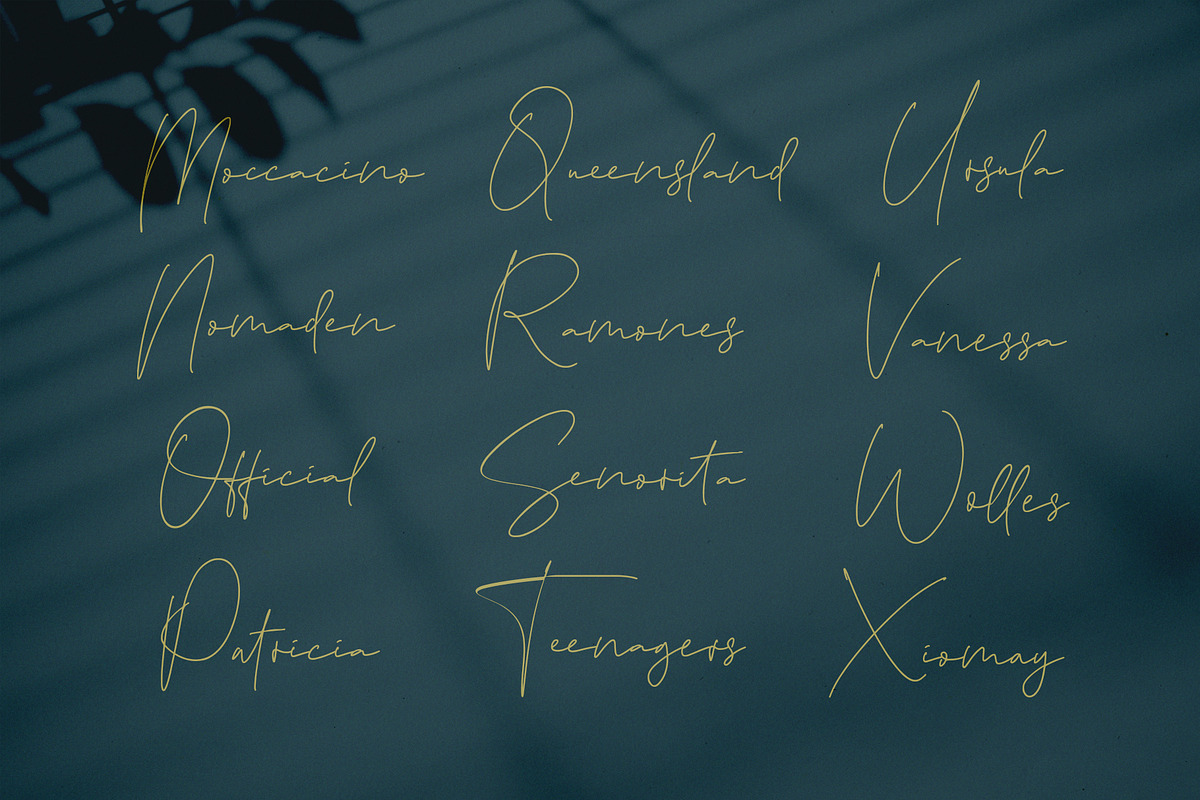 Moccacino Queensland Ursula
Nomaden Ramones Vanessa
Official Senorita Wolles
Patricia Teenagers Xiomay